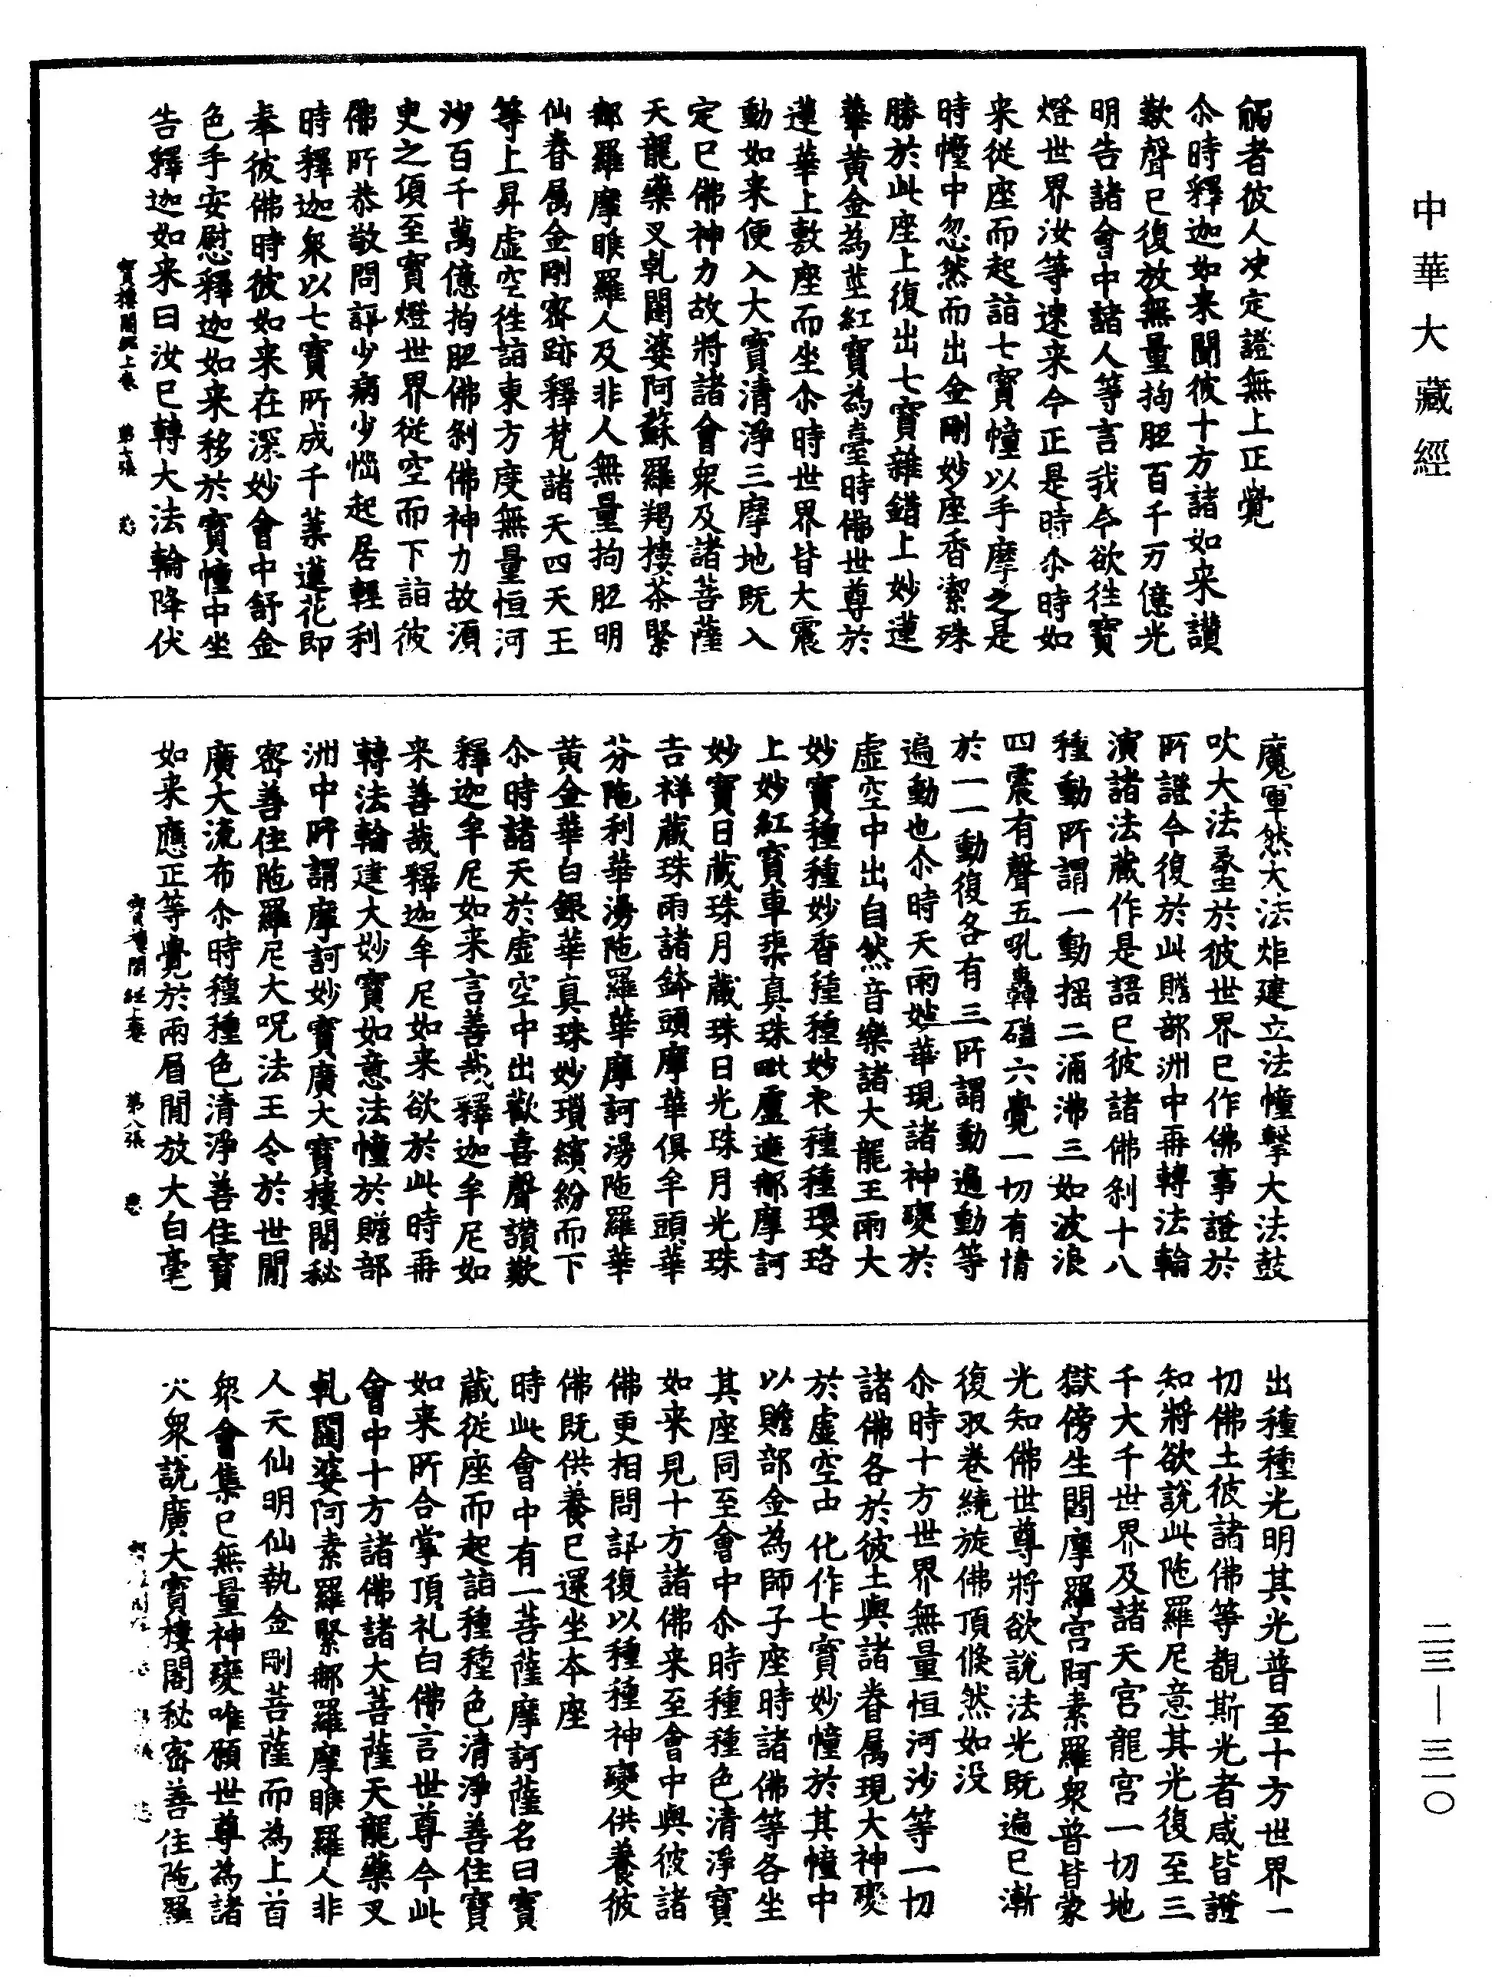 中華大藏經
觸者彼人决定證無上正覺
尒時釋迦如来聞彼十方諸如来讃
歎聲已復放無量拘胝百千万億光
明告諸會中諸人等言我今欲往寶
燈世界汝等速来今正是時尒時如
来從座而起詣七寶幢以手摩之是
時幢中忽然而出金剛妙座香潔殊
勝於此座上復出七寶雜錯上妙蓮
華黄金為莖紅寶為臺時佛世尊於
蓮華上敷座而坐尒時世界皆大震
動如来便入大寶清淨三摩地既入
定已佛神力故將諸會衆及諸菩薩
天龍藥叉乹闥婆阿蘇羅羯樓茶緊
那羅摩睺羅人及非人無量拘胝明
仙眷属金剛密跡釋梵諸天四天王
等上昇虚空往詣東方度無量恒河
沙百千萬億拘胝佛刹佛神力故湏
臾之頃至寶燈世界從空而下詣彼
佛所恭敬問評少病少惱起居輕利
時釋迦衆以七寶所成千葉蓮花即
奉彼佛時彼如来在深妙會中舒金
色手安慰釋迦如来移於寶幢中坐
告釋迦如来曰汝已轉大法輪降伏
寶樓閣經上卷 第七張
魔軍然大法炬建立法幢擊大法鼓
吹大法䗍於彼世界已作佛事證於
所證今復於此贍部洲中再轉法輪
演諸法藏作是語已彼諸佛刹十八
種動所謂一動揺二涌沸三如波浪
四震有聲五吼轟磕六覺一切有情
於一一動復各有三所謂動遍動等
遍動也尒時天雨妙華現諸神變於
虚空中出自然音樂諸大龍王雨大
妙寶種種妙香種種妙衣種種瓔珞
上妙紅寶車渠真珠毗盧遮那摩訶
妙寶日藏珠月藏珠日光珠月光珠
吉祥藏珠雨諸鉢頭摩華俱牟頭華
芬陁利華湯陁羅華摩訶湯陁羅華
黄金華白銀華真珠妙瓔繽紛而下
尒時諸天於虚空中出歡喜聲讃歎
釋迦牟尼如来言善哉釋迦牟尼如
来善哉釋迦牟尼如来欲於此時再
轉法輪建大妙寶如意法幢於贍部
洲中所謂摩訶妙寶廣大寶樓閣秘
密善住陁羅尼大呪法王令於世間
廣大流布尒時種種色清淨善住寶
如来應正等覺於兩眉間放大白毫
寶樓閣經上卷 第八張
出種種光明其光普至十方世界一
切佛土彼諸佛等覩斯光者咸皆證
知將欲說此陁羅尼意其光復至三
千大千世界及諸天宫龍宫一切地
獄傍生閻摩羅宫阿素羅衆普皆蒙
光知佛世尊將欲說法光既遍已漸
復収卷繞旋佛頂倐然如没
尒時十方世界無量恒河沙等一切
諸佛各於彼土與諸眷属現大神變
於虚空中化作七寶妙幢於其幢中
以贍部金為師子座時諸佛等各坐
其座同至會中尒時種種色清淨寶
如来見十方諸佛来至會中與彼諸
佛更相問評復以種種神變供養彼
佛既供養已還坐夲座
時此會中有一菩薩摩訶薩名曰寶
藏從座而起詣種種色清淨善住寶
如来所合掌頂礼白佛言世尊今此
會中十方諸佛諸大菩薩天龍藥叉
乹闥婆阿素羅緊那羅摩睺羅人非
人天仙明仙執金剛菩薩而為上首
衆會集已無量神變唯願世尊為諸
大衆說廣大寶樓閣秘密善住陁羅
二三—三一〇